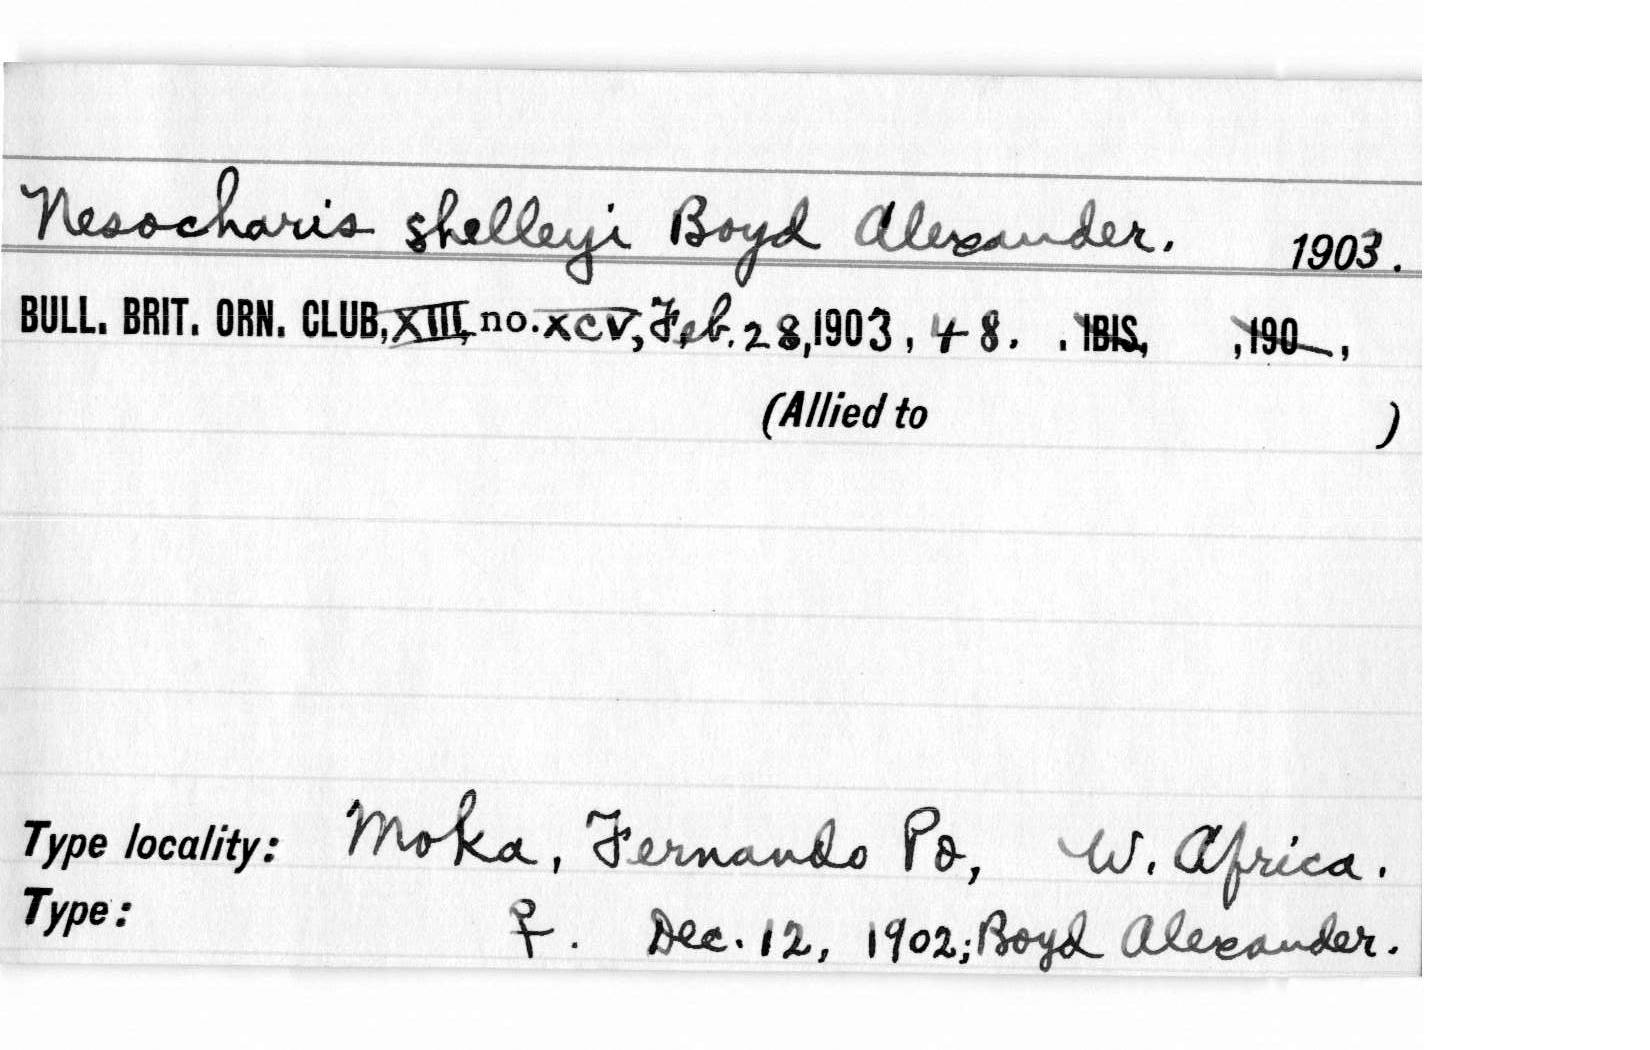 Nesocharis shelleyi Boyd Alexander. 1903.
BULL. BRIT. ORN. CLUB, XIII, no. XCV, Feb. 28, 1903, 48. . IBIS, ,190 ,
(Allied to )
Type locality: Moka, Fernando Po, W. Africa.
Type: ♀. Dec. 12, 1902; Boyd Alexander.